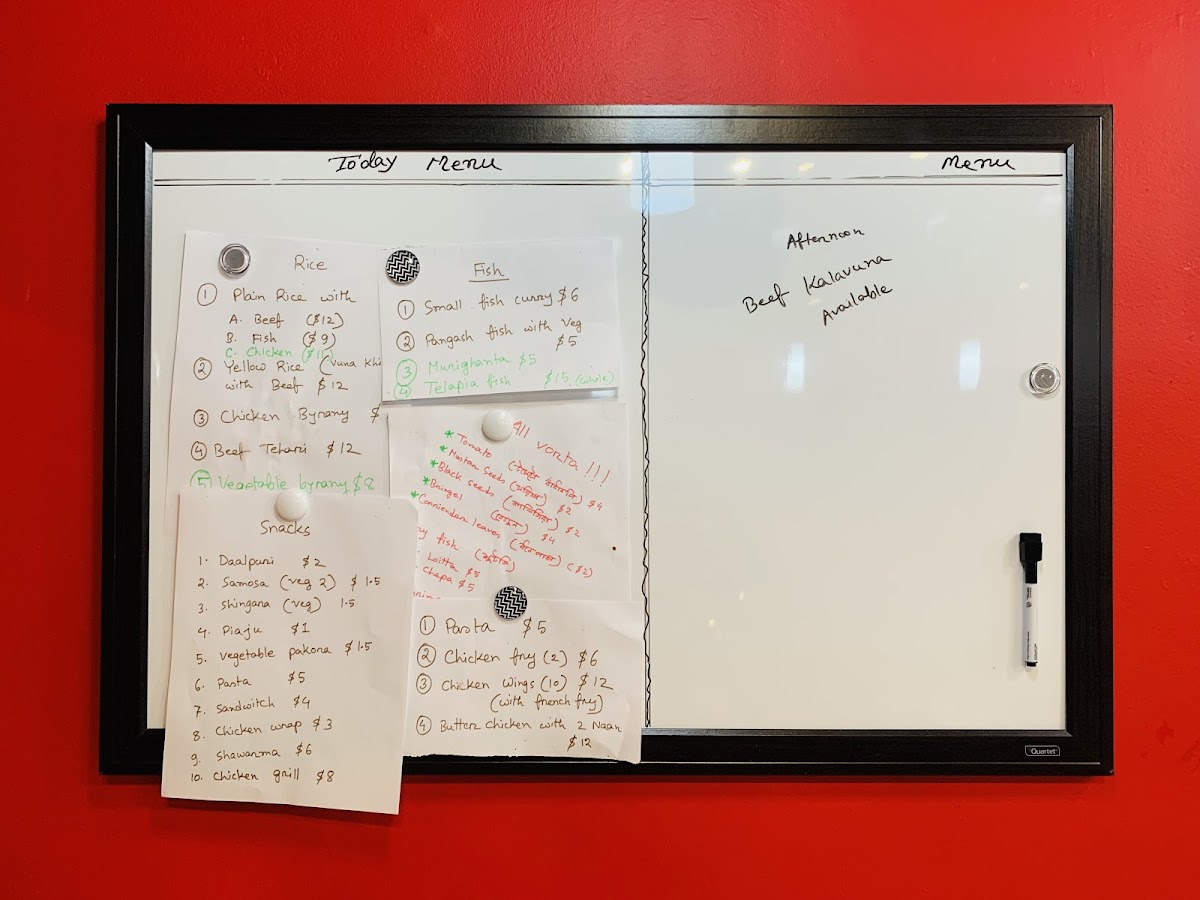 Today Menu
Rice
1 Plain Rice with
A. Beef ($12)
B. Fish ($9)
C. Chicken
2 Yellow Rice (vuna khi
with Beef $12
3 Chicken Byrany $
4 Beef Tehari $12
5 Vegetable byrany $8
Fish
1 Small fish curry $6
2 Pangash fish with Veg
$5
3 Murighanta $5
4 Telapia fish $15 (whole)
All vorta !!!
* Tomato $4
* Mustar Seeds $2
* Black seeds $2
* Bringel $4
* Corriendar leaves ($2)
fish
Loitta $5
Chepa $5
Snacks
1. Daalpuri $2
2. Samosa (veg 2) $1.5
3. Shingara (veg) 1.5
4. Piaju $1
5. Vegetable pakora $1.5
6. Pasta $5
7. Sandwitch $4
8. Chicken wrap $3
9. Shawarma $6
10. Chicken grill $8
1 Pasta $5
2 Chicken fry (2) $6
3 Chicken Wings (10) $12
(with french fry)
4 Butter Chicken with 2 Naan
$12
Menu
Afternoon
Beef Kalavuna
Available
Quartet